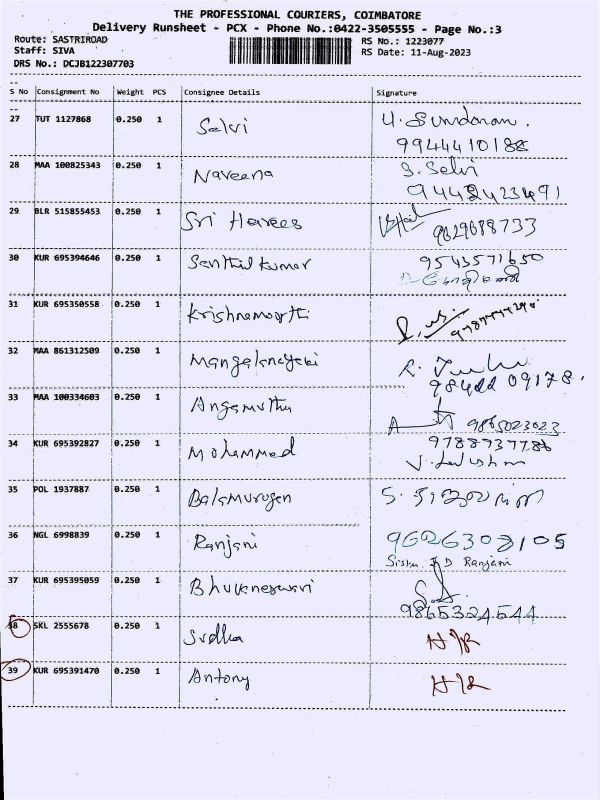 THE PROFESSIONAL COURIERS, COIMBATORE
Delivery Runsheet - PCX - Phone No.:0422-3505555 - Page No.:3
Route: SASTRIROAD
Staff: SIVA
DRS No.: DCJB122307703
RS No.: 1223077
RS Date: 11-Aug-2023
S No Consignment No Weight PCS Consignee Details Signature
27 TUT 1127868 0.250 1 Selvi U. Sundaram.
28 MAA 100825343 0.250 1 Naveena S. Selvi
29 BLR 515855453 0.250 1 Sri Harees
30 KUR 695394646 0.250 1 Senthil kumar 9543571650
31 KUR 695350558 0.250 1 Krishnamoorthi
32 MAA 861312509 0.250 1 Mangalanayaki
33 MAA 100334603 0.250 1 Angamuthu 9865023023
34 KUR 695392827 0.250 1 Mohammed
35 POL 1937887 0.250 1 Balamurugan
36 NGL 6998839 0.250 1 Ranjani
Ranjani
37 KUR 695395059 0.250 1 Bhuvaneswari
9865324544
38 SKL 2555678 0.250 1 Sudha
39 KUR 695391470 0.250 1 Antony